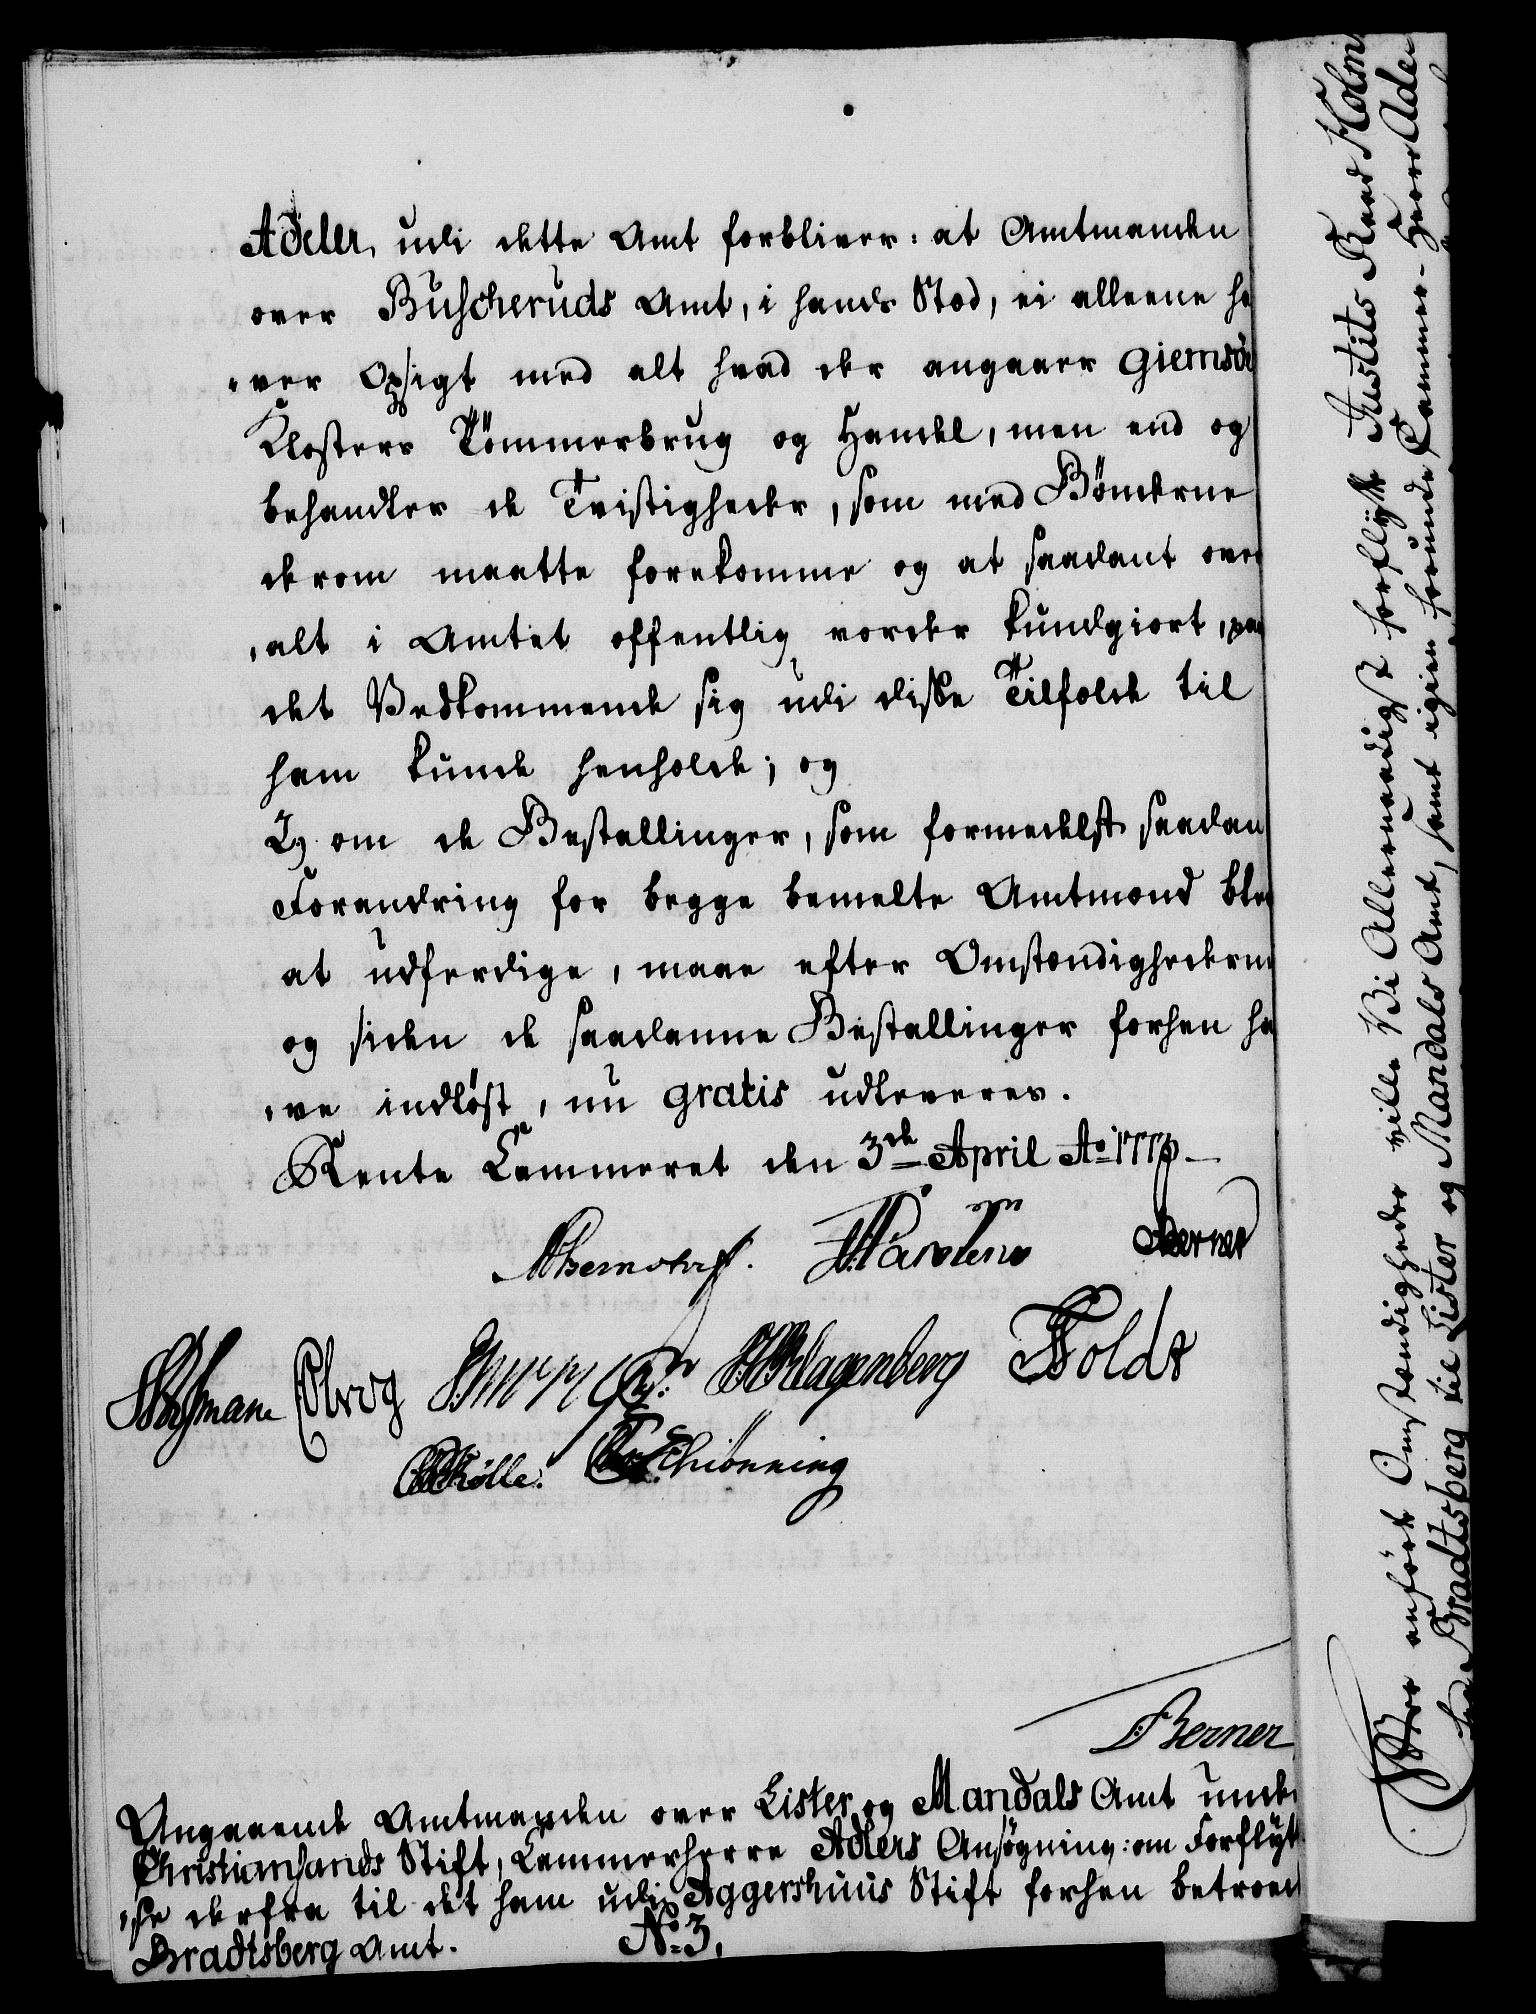 Adeler, udi dette Amt forbliver: at Amtmanden
over Buscheruds Amt, i hands Stæd, ei alleene ha
"ver Opsigt med alt hvad der angaaer Giemsöe
Klosters Tömmerbrug og Handel, men end og
behandler de Tvistigheder, som med Bønderne
derom maatte forekomme og at saadant over
"alt i Amtet offentlig vorder kundgiort, paa
det Vedkommende sig udi disse Tilfælde til
ham kunde henholde; og
2) om de Bestallinger, som formedelst saadan
Forandring for begge bemelte Amtmænd blev
at udferdige, maae efter Omstændighederne
og siden de saadanne Bestallinger forhen ha
"ve indløst, nu gratis udleveres.
Rente Cammeret den 3de April Ao 1773
Berner
Holdt
Schiönning
Berner
Angaaende Amtmanden over Lister og Mandals Amt unde
Christiansands Stift, Cammerherre Adlers Ansøgning: om Forflyt
"se derfra til det ham udi Aggershuus Stift forhen betroed
Bradtsberg Amt.
No 3.
Paa anförte Omstændigheder ville Vi Allernaadigst forflytte Justits Raad Holm
fra Bradtsberg til Lister og Mandals Amt, samt igien forunde Cammer-Herr Ade